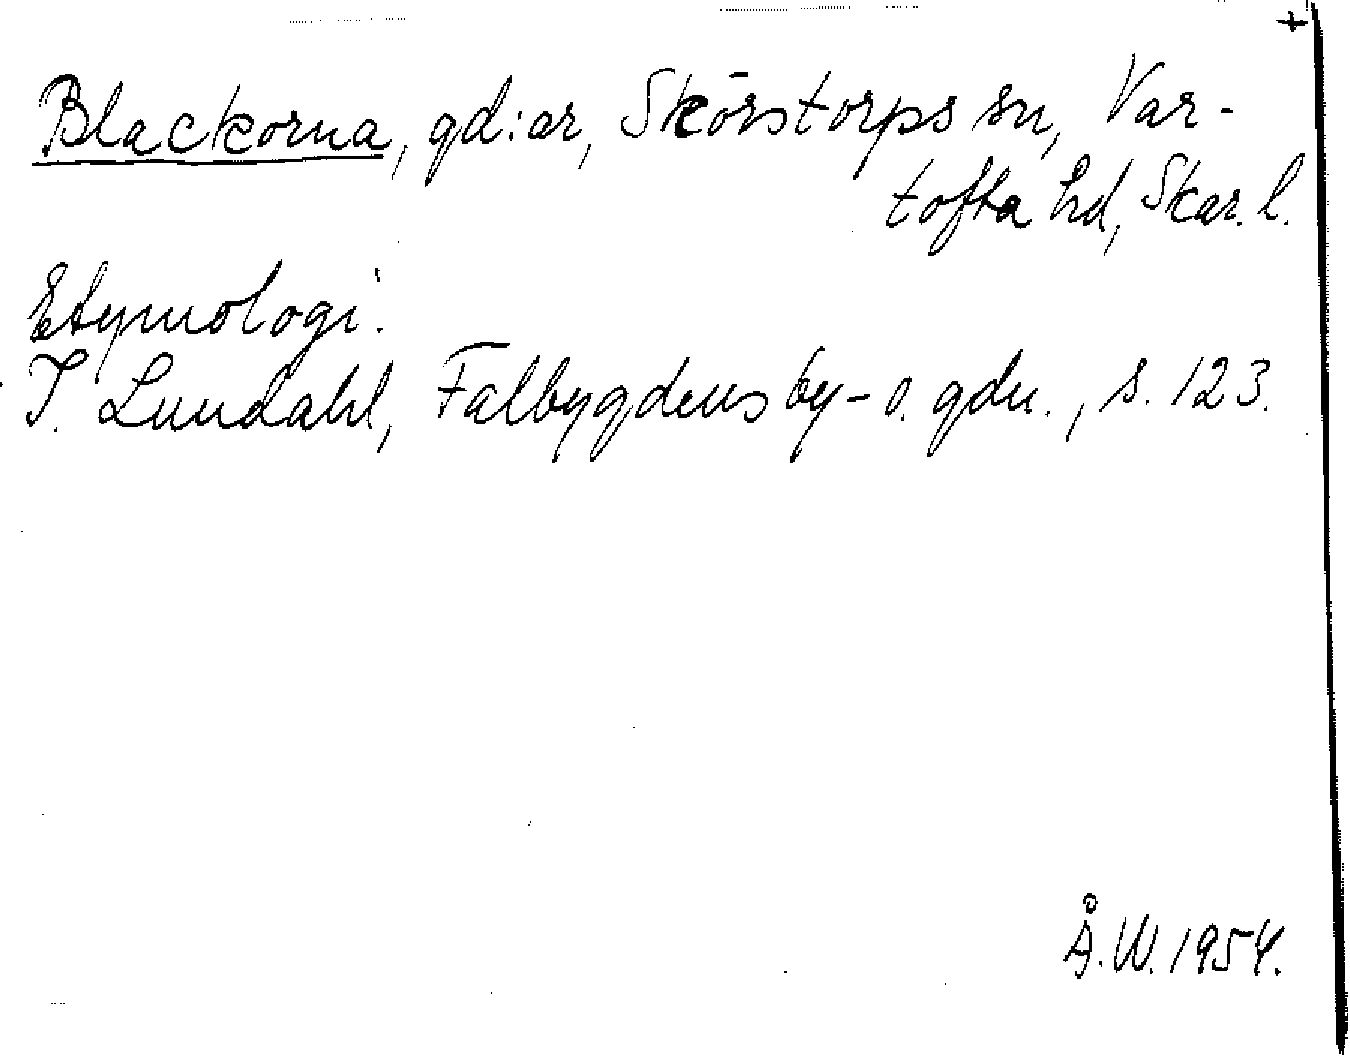 +
Blackorna, gd:ar, Skörstorps sn, Var-
tofta hd, Skar. l.
Etymologi:
I. Lundahl, Falbygdens by- o. gdn., s. 123.
Å.W. 1954.